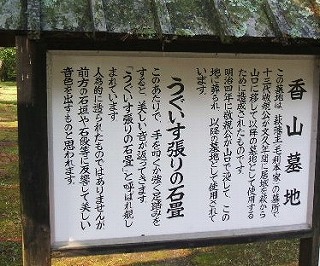 香山墓地
この墓地は、萩藩主毛利本家の墓所で
十三代敬親公が文久年間に居城を萩から
山口に移して以降の墓地として使用する
ために造成されたものです。
明治四年に敬親公が山口で逝して、この
地に葬られ、以降の墓地として使用されて
います。
うぐいす張りの石畳
このあたりで、手を叩くか強く足踏みを
すると、美しい音が返ってきます。
「うぐいす張りの石畳」と呼ばれ親し
まれています。
人為的に造られたものではありませんが
前方の石垣や石段等に反響して美しい
音色を出すものと思われます。